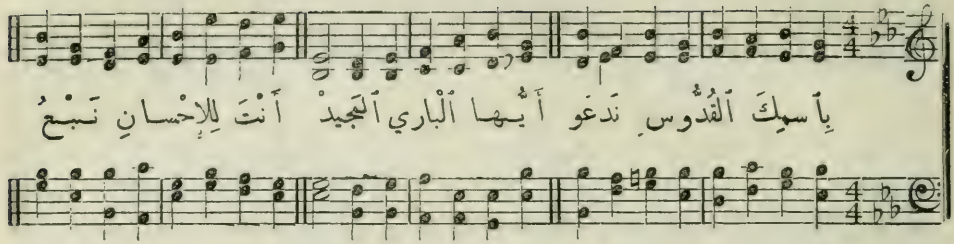 بِٱسمِكَ ٱلْقُدُّوسِ نَدعَو أَيُّهـا ٱلْبَارِي ٱلْمَجِيدْ أَنْتَ لِلإِحْسـانِ نَـبْـعُ